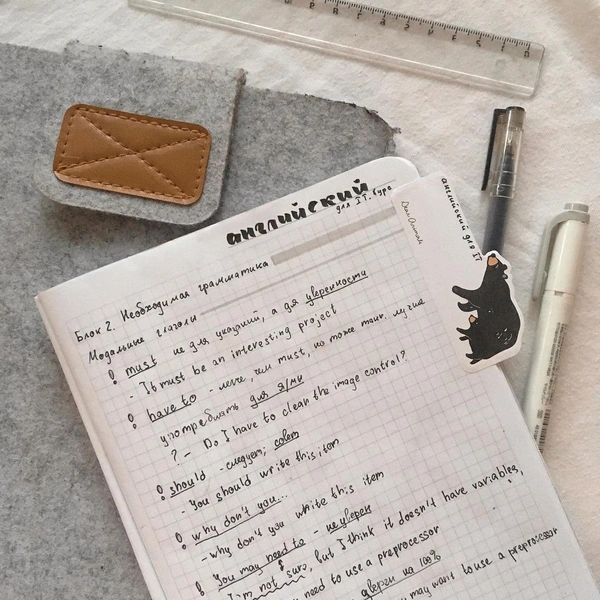 английский
для IT. курс
английский для IT
Блок 2. Необходимая грамматика
Модальные глаголы
must не для указаний, а для уверенности
- It must be an interesting project
have to - легче, чем must, но тоже
употреблять для я/мы
? - Do I have to clean the image control?
should - следует, совет
- You should write this item
why don't you...
- why don't you write this item
You may need to - не уверен
I'm not sure, but I think it doesn't have variables,
need to use a preprocessor
уверен на 100%
may want to use a preprocessor